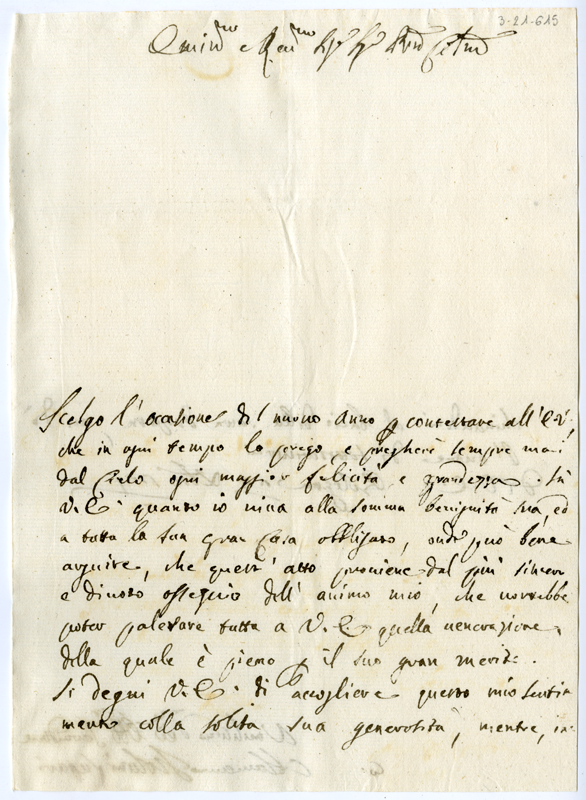 3-21-615
Emin.mo e Rev.mo Sig.r Sig.r
Scelgo l' occasione del nuovo Anno p contestare all' E.V.
che in ogni tempo lo prego e pregherò sempre mai
dal Cielo ogni maggior felicità e grandezza. Sà
V.E. quanto io viva alla somma benignità sua, ed
a tutta la sua gran Casa obbligato, onde può bene
arguire, che quest' atto proviene dal più sincero
e divoto ossequio dell' animo mio, che vorrebbe
poter palesare tutta a V.E. quella venerazione,
della quale è pieno p il suo gran merito.
Si degni V.E. di accogliere questo mio senti
mento colla solita sua generosità, mentre, in